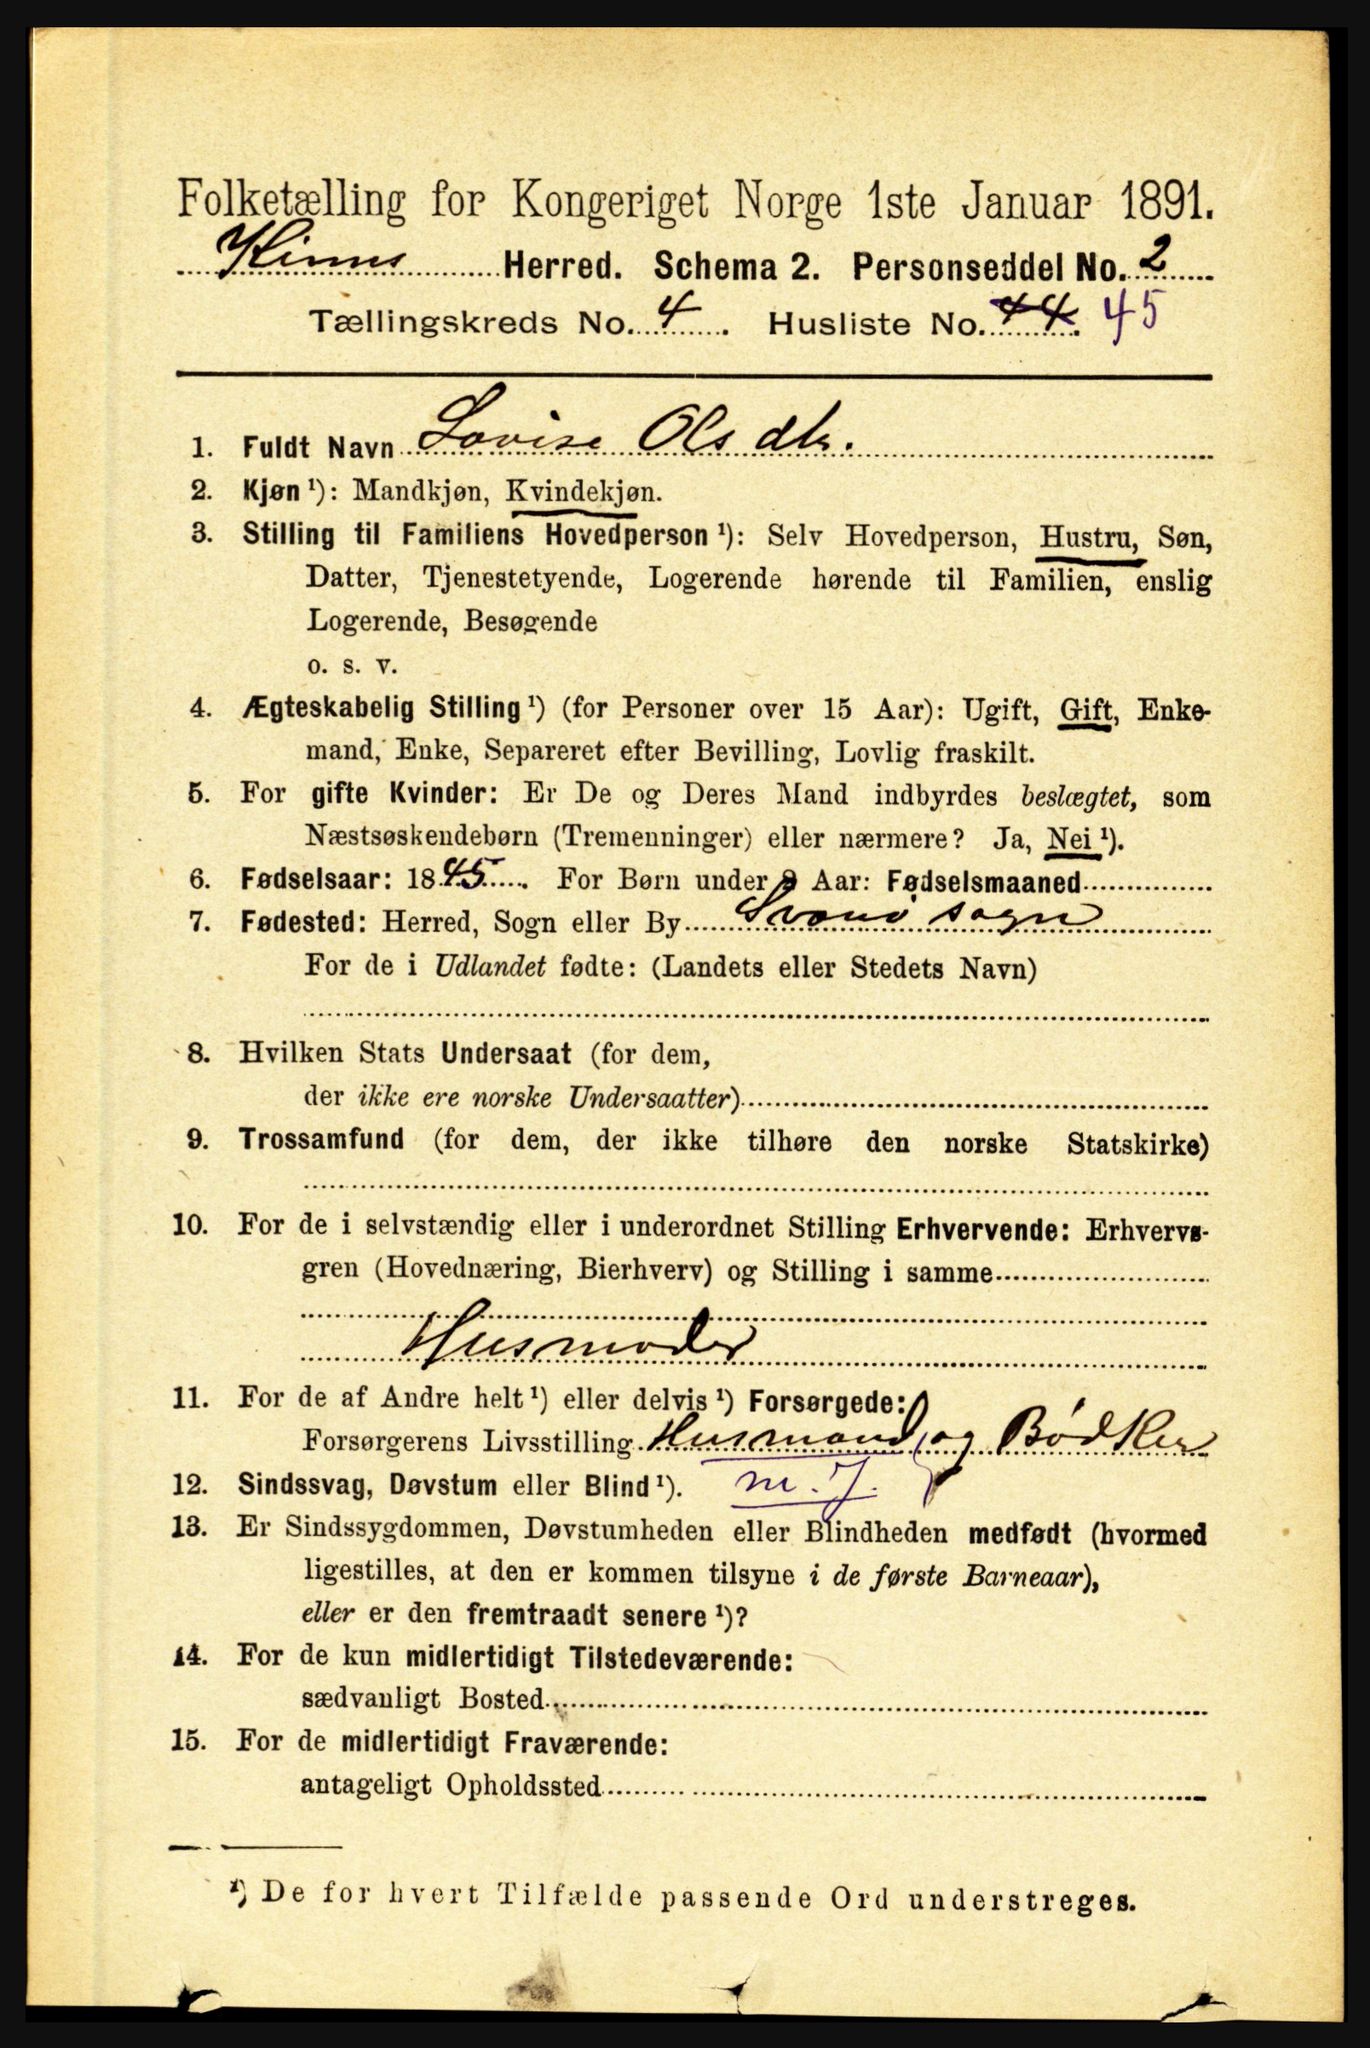 Folketælling for Kongeriget Norge 1ste Januar 1891.
Kinns Herred. Schema 2. Personseddel No. 2
Tællingskreds No. 4. Husliste No. 44. 45
1. Fuldt Navn Lovise Olsdtr.
2. Kjøn ¹): Mandkjøn, Kvindekjøn.
3. Stilling til Familiens Hovedperson ¹): Selv Hovedperson, Hustru, Søn,
Datter, Tjenestetyende, Logerende hørende til Familien, enslig
Logerende, Besøgende
o. s. v.
4. Ægteskabelig Stilling ¹) (for Personer over 15 Aar): Ugift, Gift, Enke-
mand, Enke, Separeret efter Bevilling, Lovlig fraskilt.
5. For gifte Kvinder: Er De og Deres Mand indbyrdes beslægtet, som
Næstsøskendebørn (Tremenninger) eller nærmere? Ja, Nei ¹).
6. Fødselsaar: 1845. For Børn under 2 Aar: Fødselsmaaned
7. Fødested: Herred, Sogn eller By Svanø sogn
For de i Udlandet fødte: (Landets eller Stedets Navn)
8. Hvilken Stats Undersaat (for dem,
der ikke ere norske Undersaatter)
9. Trossamfund (for dem, der ikke tilhøre den norske Statskirke)
10. For de i selvstændig eller i underordnet Stilling Erhvervende: Erhvervs-
gren (Hovednæring, Bierhverv) og Stilling i samme
Husmoder
11. For de af Andre helt ¹) eller delvis ¹) Forsørgede:
Forsørgerens Livsstilling Husmand og Bødker
12. Sindssvag, Døvstum eller Blind ¹). m. J.
13. Er Sindssygdommen, Døvstumheden eller Blindheden medfødt (hvormed
ligestilles, at den er kommen tilsyne i de første Barneaar),
eller er den fremtraadt senere ¹)?
14. For de kun midlertidigt Tilstedeværende:
sædvanligt Bosted
15. For de midlertidigt Fraværende:
antageligt Opholdssted
¹) De for hvert Tilfælde passende Ord understreges.